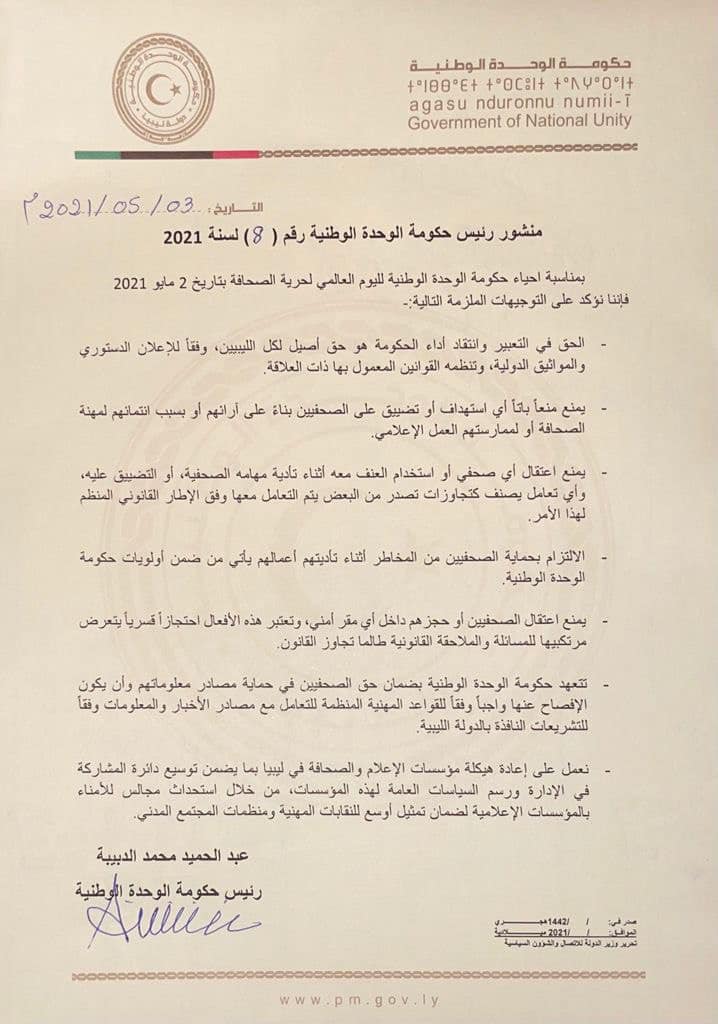 حكومة الوحدة الوطنية
agasu nduronnu numii-ī
Government of National Unity
حكومة الوحدة الوطنية
دولة ليبيا
التاريخ: 2021/05/03 م
منشور رئيس حكومة الوحدة الوطنية رقم ( 8 ) لسنة 2021
بمناسبة احياء حكومة الوحدة الوطنية لليوم العالمي لحرية الصحافة بتاريخ 2 مايو 2021
فإننا نؤكد على التوجيهات الملزمة التالية:-
- الحق في التعبير وانتقاد أداء الحكومة هو حق أصيل لكل الليبيين، وفقاً للإعلان الدستوري
والمواثيق الدولية، وتنظمه القوانين المعمول بها ذات العلاقة.
- يمنع منعاً باتاً أي استهداف أو تضييق على الصحفيين بناءً على آرائهم أو بسبب انتمائهم لمهنة
الصحافة أو لممارستهم العمل الإعلامي.
- يمنع اعتقال أي صحفي أو استخدام العنف معه أثناء تأدية مهامه الصحفية، أو التضييق عليه،
وأي تعامل يصنف كتجاوزات تصدر من البعض يتم التعامل معها وفق الإطار القانوني المنظم
لهذا الأمر.
- الالتزام بحماية الصحفيين من المخاطر أثناء تأديتهم أعمالهم يأتي من ضمن أولويات حكومة
الوحدة الوطنية.
- يمنع اعتقال الصحفيين أو حجزهم داخل أي مقر أمني، وتعتبر هذه الأفعال احتجازاً قسرياً يتعرض
مرتكبيها للمسائلة والملاحقة القانونية طالما تجاوز القانون.
- تتعهد حكومة الوحدة الوطنية بضمان حق الصحفيين في حماية مصادر معلوماتهم وأن يكون
الإفصاح عنها واجباً وفقاً للقواعد المهنية المنظمة للتعامل مع مصادر الأخبار والمعلومات وفقاً
للتشريعات النافذة بالدولة الليبية.
- نعمل على إعادة هيكلة مؤسسات الإعلام والصحافة في ليبيا بما يضمن توسيع دائرة المشاركة
في الإدارة ورسم السياسات العامة لهذه المؤسسات، من خلال استحداث مجالس للأمناء
بالمؤسسات الإعلامية لضمان تمثيل أوسع للنقابات المهنية ومنظمات المجتمع المدني.
عبد الحميد محمد الدبيبة
رئيس حكومة الوحدة الوطنية
صدر في: / /1442هجري
الموافق: / /2021 ميلادية
تحرير وزير الدولة للاتصال والشؤون السياسية
www.pm.gov.ly